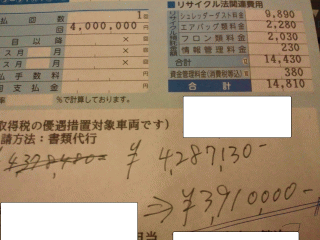 払 回 数 1 回
回 4,000,000 円
目 以 降 × 円
ス 月 月 × 円
ス 月 月 × 円
払 手 数 料 円
率 %で計算しております。
■リサイクル法関連費用
シュレッダーダスト料金 9,890
エアバッグ類料金 2,280
フロン類料金 2,030
情報管理料金 230
合計 14,430
資金管理料金(消費税等込) 380
合計 14,810
取得税の優遇措置対象車両です)
請方法:書類代行
¥4378480- ¥4,287,130-
⇒ ¥3,910,000-
担当